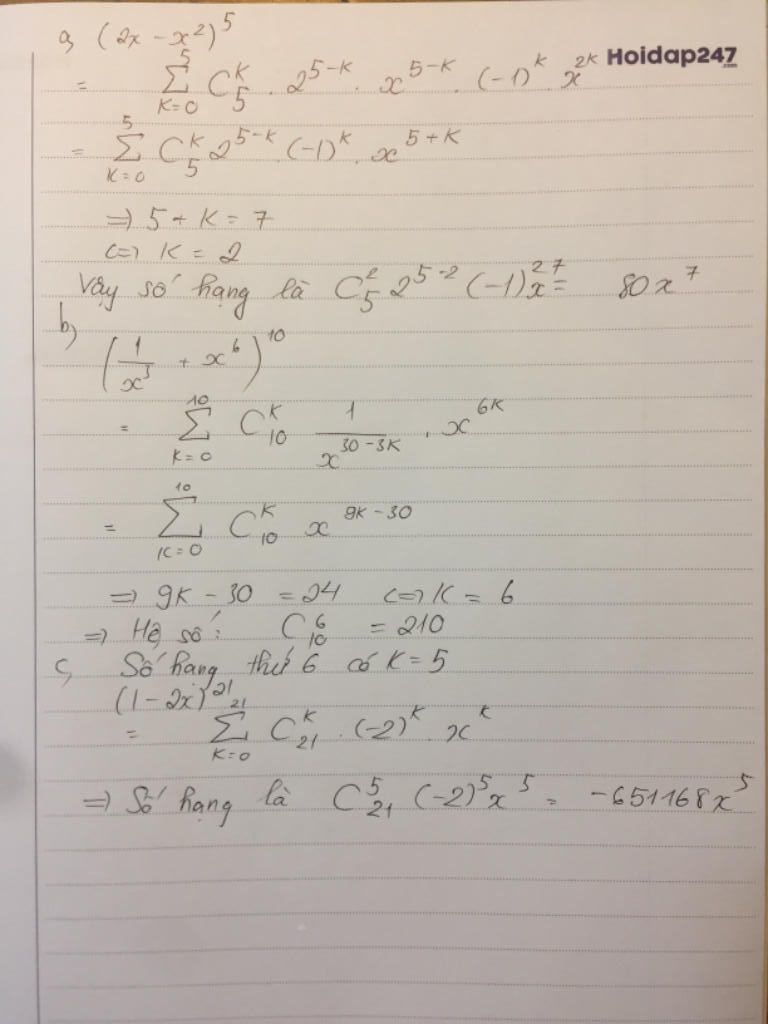 a, (2x - x²)⁵
Hoidap247
= \sum_{K=0}^{5} C_5^K . 2^{5-K} . x^{5-K} . (-1)^K x^{2K}
= \sum_{K=0}^{5} C_5^K 2^{5-K} . (-1)^K . x^{5+K}
=> 5 + K = 7
<=> K = 2
Vậy số hạng là C_5^2 2^{5-2} (-1)^2 x^7 = 80x^7
b)
(\frac{1}{x^3} + x^6)^{10}
= \sum_{K=0}^{10} C_{10}^K \frac{1}{x^{30-3K}} . x^{6K}
= \sum_{K=0}^{10} C_{10}^K x^{9K-30}
=> 9K - 30 = 24 <=> K = 6
=> Hệ số: C_{10}^6 = 210
c, Số hạng thứ 6 có K = 5
(1 - 2x)^{21}
= \sum_{K=0}^{21} C_{21}^K . (-2)^K . x^K
=> Số hạng là C_{21}^5 (-2)^5 x^5 = -651168x^5